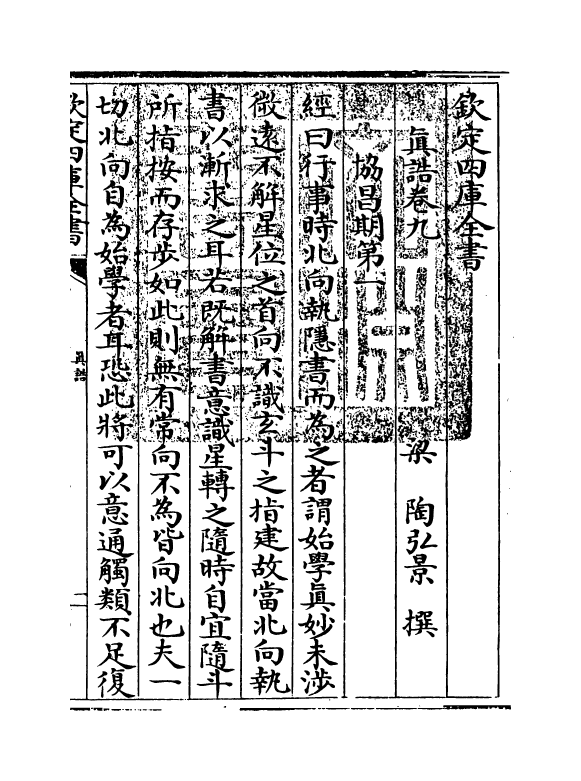 欽定四庫全書
真誥卷九
梁 陶弘景 撰
協昌期第一
經曰行事時北向執隱書而為之者謂始學真妙未涉
微遠不解星位之首向不識玄斗之指建故當北向執
書以漸求之耳若既解書意識星轉之隨時自宜隨斗
所指按而存步如此則無有常向不為皆向北也夫一
切北向自為始學者耳恐此將可以意通觸類不足復
欽定四庫全書
真誥